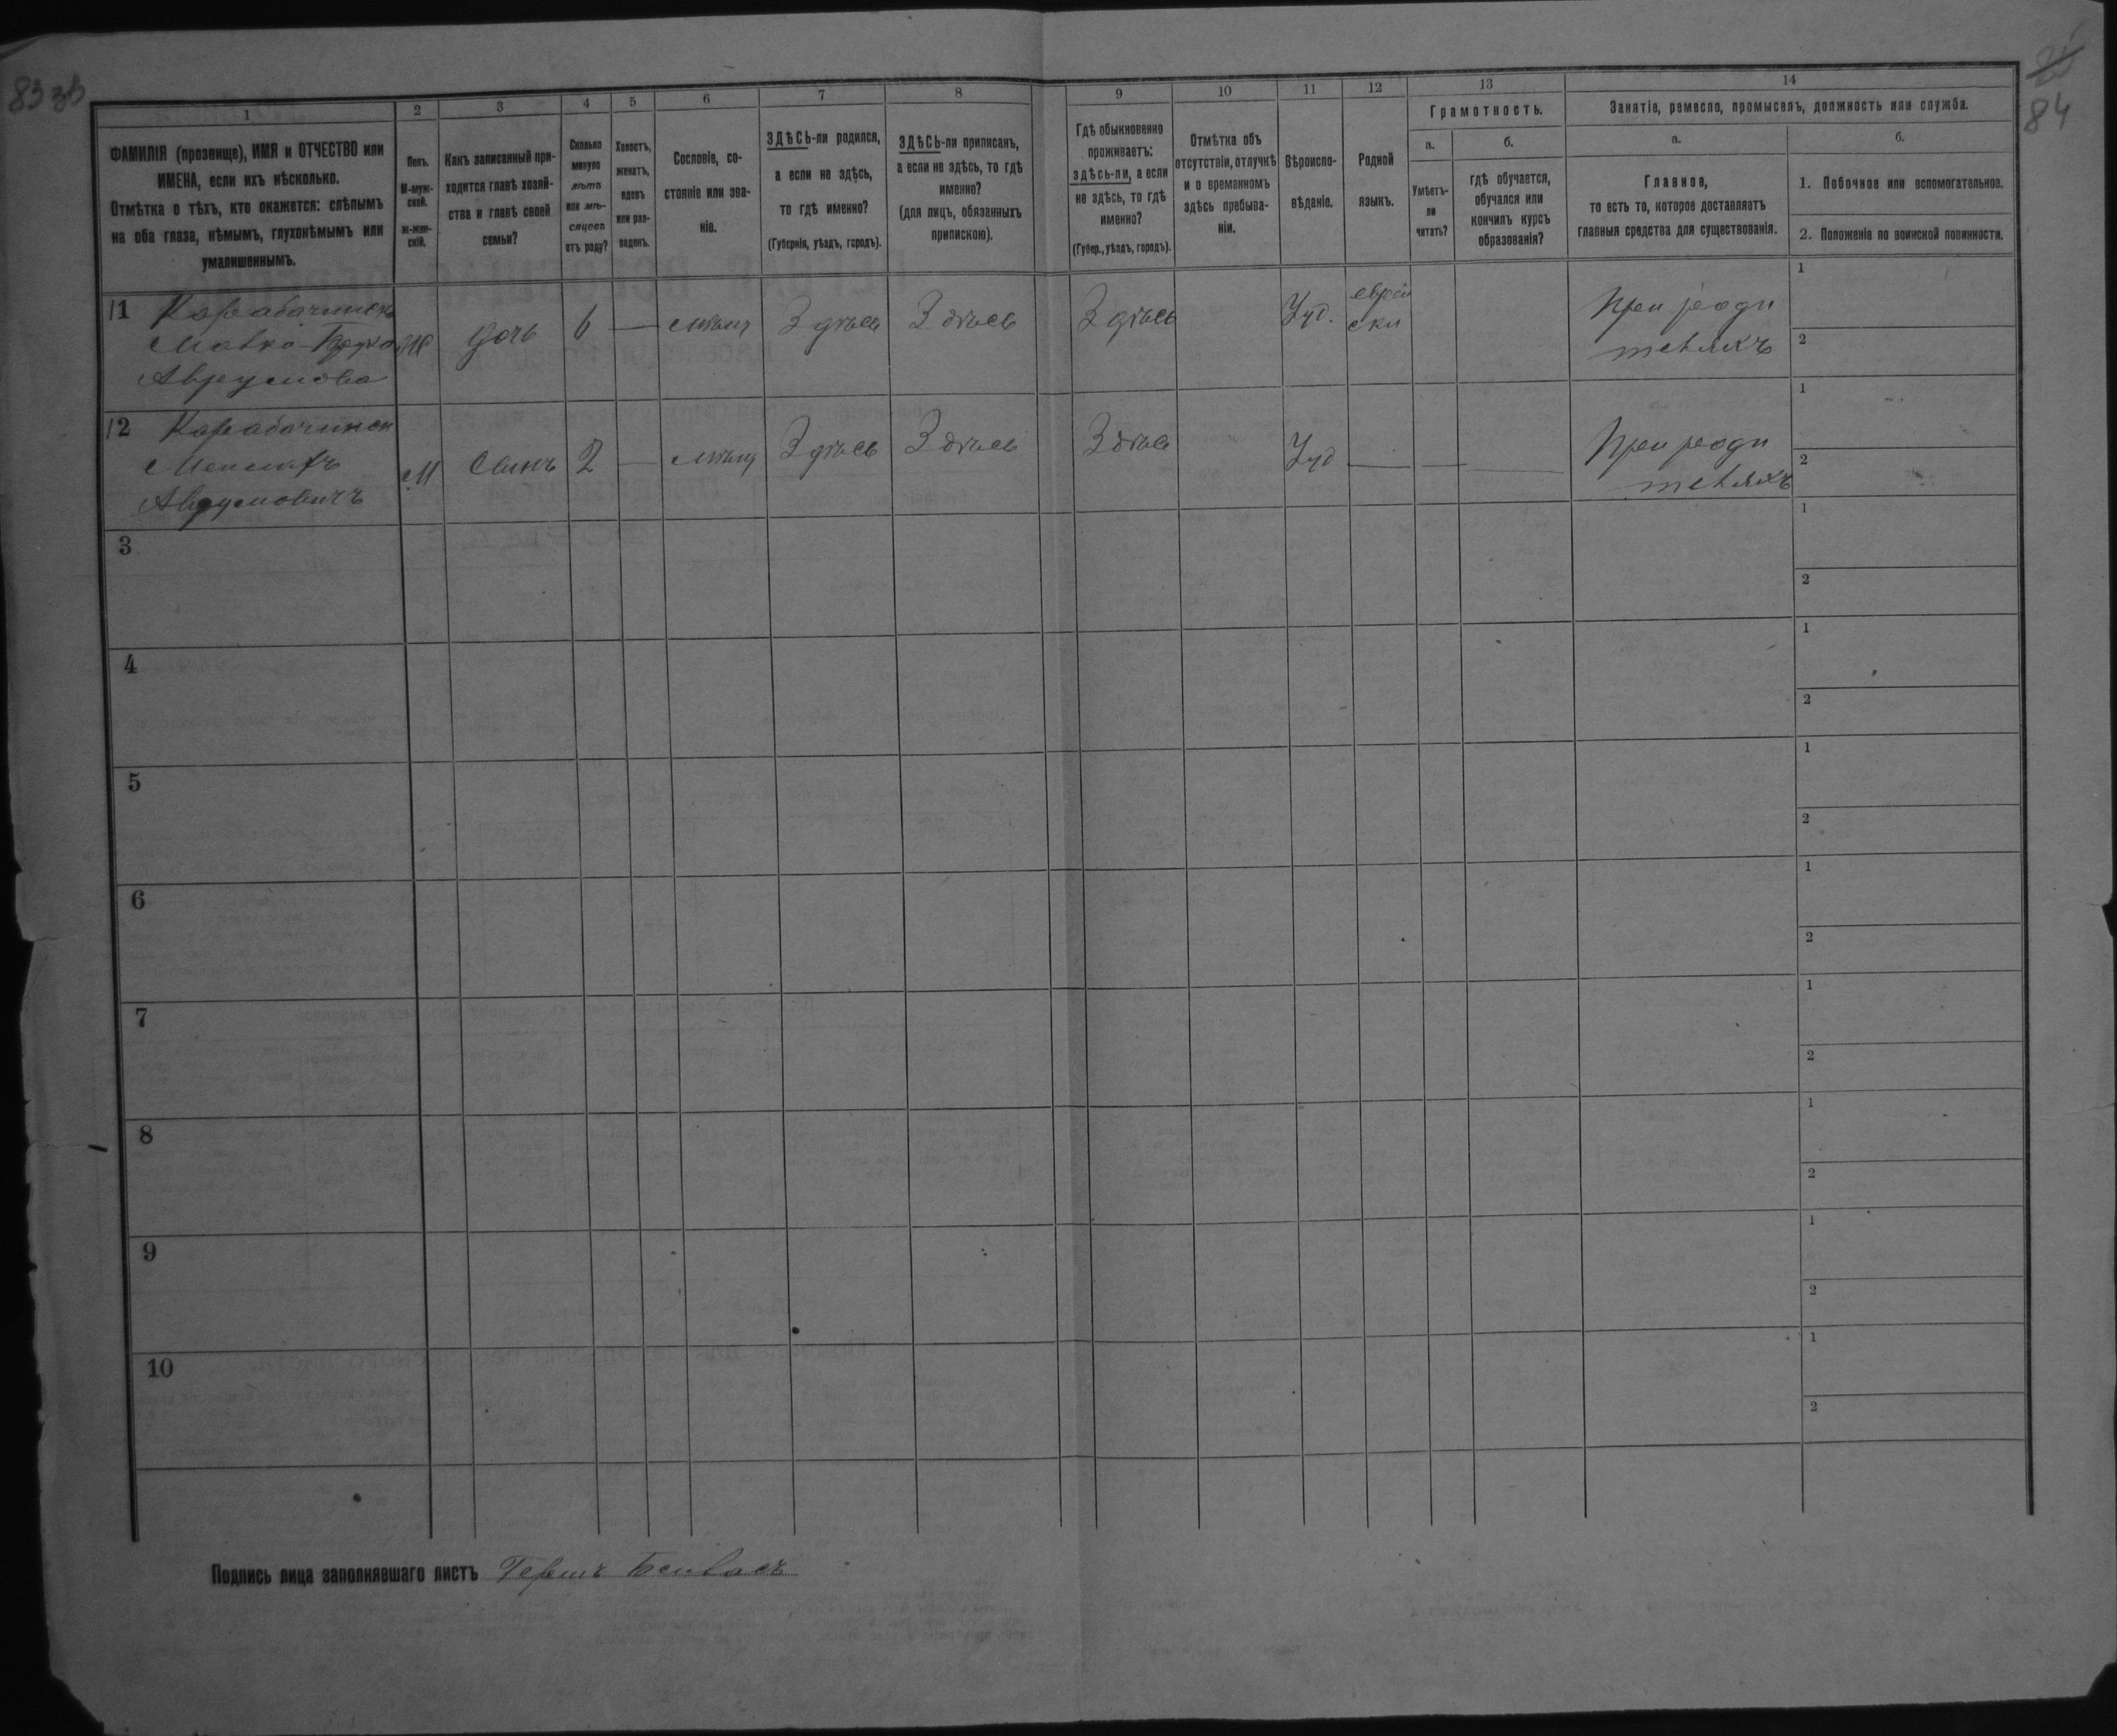 83 зв
84
1
2
3
4
5
6
7
8
9
10
11
12
13
14
ФАМИЛІЯ (прозвище), ИМЯ и ОТЧЕСТВО или
ИМЕНА, если ихъ нѣсколько.
Отмѣтка о тѣхъ, кто окажется: слѣпымъ
на оба глаза, нѣмымъ, глухонѣмымъ или
умалишеннымъ.
Полъ.
М-муж-
ской.
ж-жен-
скій.
Какъ записанный при-
ходится главѣ хозяй-
ства и главѣ своей
семьи?
Сколько
минуло
лѣтъ
или мѣ-
сяцевъ
отъ роду?
Холостъ,
женатъ,
вдовъ
или раз-
веденъ.
Сословіе, со-
стояніе или зва-
ніе.
ЗДѢСЬ-ли родился,
а если не здѣсь,
то гдѣ именно?
(Губернія, уѣздъ, городъ).
ЗДѢСЬ-ли приписанъ,
а если не здѣсь, то гдѣ
именно?
(для лицъ, обязанныхъ
припискою).
Гдѣ обыкновенно
проживаетъ:
здѣсь-ли, а если
не здѣсь, то гдѣ
именно?
(Губер., уѣздъ, городъ).
Отмѣтка объ
отсутствіи, отлучкѣ
и о временномъ
здѣсь пребыва-
ніи.
Вѣроиспо-
вѣданіе.
Родной
языкъ.
Грамотность.
а.
Умѣетъ-
ли
читать?
б.
гдѣ обучается,
обучался или
кончилъ курсъ
образованія?
Занятіе, ремесло, промыселъ, должность или служба.
а.
Главное,
то есть то, которое доставляетъ
главныя средства для существованія.
б.
1. Побочное или вспомогательное.
2. Положеніе по воинской повинности.
11 Карабачинск
Авруmова
Ж дочь 6 — мѣщ Здѣсь Здѣсь Здѣсь Іуд.
еврей
ски
При роди
теляхъ
1
2
12 Карабачинск
Авруmовичъ
М Сынъ 2 — мѣщ Здѣсь Здѣсь Здѣсь Іуд — — —
При роди
теляхъ
1
2
3
1
2
4
1
2
5
1
2
6
1
2
7
1
2
8
1
2
9
1
2
10
1
2
Подпись лица заполнявшаго листъ Гершъ